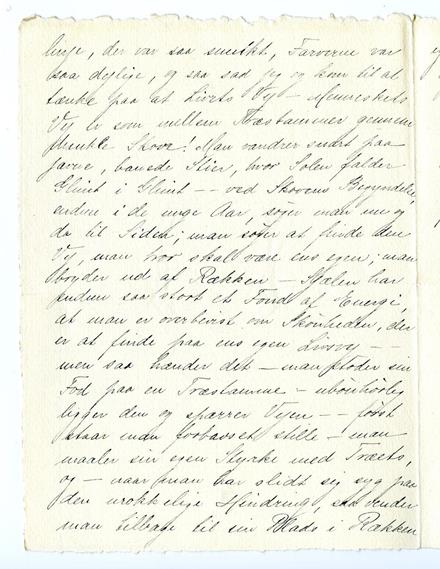 linge, der var saa smukt, Farverne var
saa dejlige, og saa sad jeg og kom til at
tænke paa at Livets Vej – Menneskets
Vej er som mellem Træstammer gennem
Skove! Man vandrer endnu paa
jævne, banede Stier, hvor Solen falder
Glimt i Glimt – – ved Skovens Begyndelse,
endnu i de unge Aar, søger man nu og
da til Siden; man søger at finde den
Vej, man tror skal være ens egen; man
bryder ud af Rækken – Sjælen har
endnu saa stort et Fond af Energi,
at man er overbevist om Skönheden, der
er at finde paa ens egen Livsvej – –
men saa hænder det – man støder sin
Fod paa en Træstamme – ubönhörlig
ligger den og spærrer Vejen – – först
staar man forbavset stille – man
maaler sin egen Styrke med Træets,
og – naar man har slidt sig syg paa
den urokkelige Hindring, saa vender
man tilbage til sin Plads i Rækken